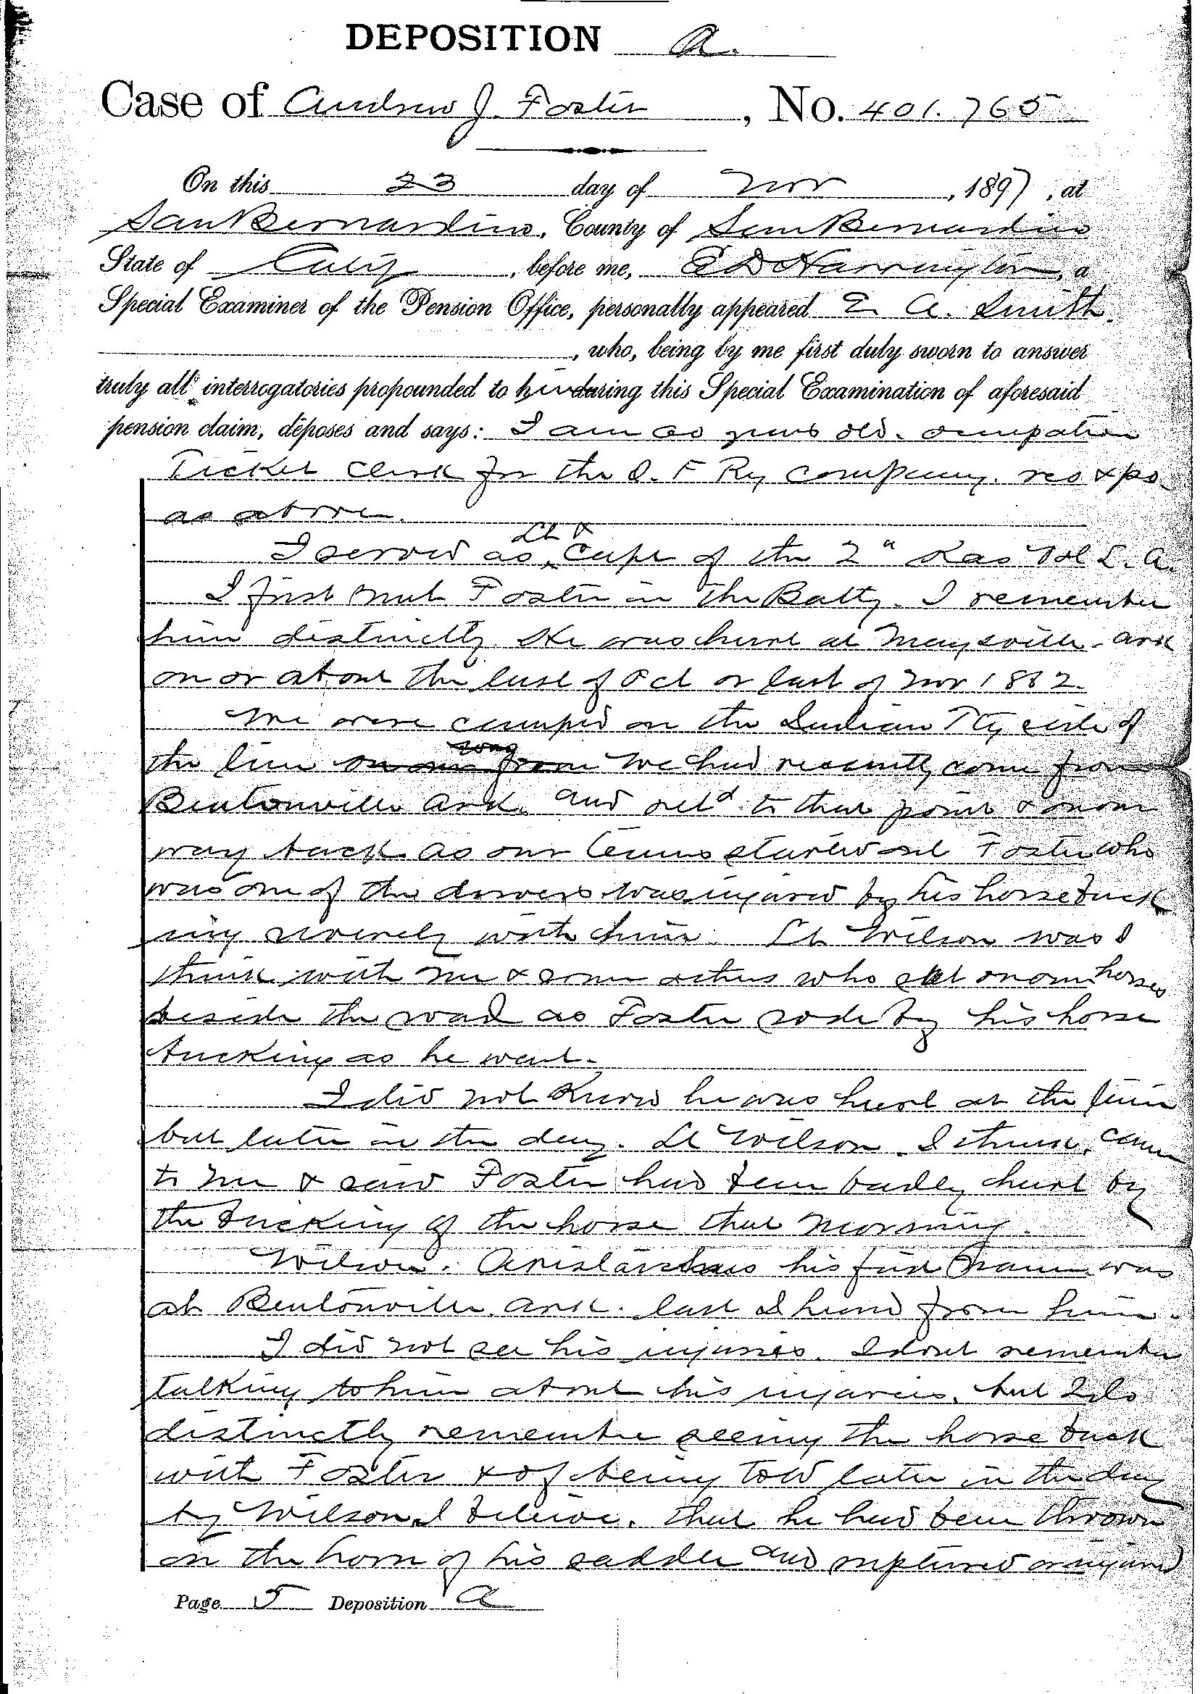 DEPOSITION A.
Case of Andrew J. Foster, No. 401.765
On this 23 day of Nov, 1897, at
San Bernardino, County of San Bernardino
State of Calif, before me, E D Harrington, a
Special Examiner of the Pension Office, personally appeared E. A. Smith.
, who, being by me first duly sworn to answer
truly all interrogatories propounded to him during this Special Examination of aforesaid
pension claim, deposes and says: I am years old. occupation
Ticket Clerk for the Ry company. res & po.
as above.
Lt &
I served as Capt of the 2" Kas Vol L. A.
I first met Foster in the Batty. I remember
him distinctly. He was hurt at Maysville Ark
on or about the last of Oct or last of Nov 1862.
We were camped on the Indian Tty side of
the line We had recently come from
Bentonville Ark. and retd to that point & on our
way back as our teams started out Foster who
was one of the drivers was injured by his horse buck
ing severely with him. Lt Wilson was I
think with me & some others who sat on our horses
beside the road as Foster rode by his horse
bucking as he went.
I did not know he was hurt at the time
but later in the day. Lt Wilson, I think, came
to me & said Foster had been badly hurt by
the bucking of the horse that morning.
Wilson. Aristarchus his first name was
at Bentonville, Ark. last I heard from him.
I did not see his injuries. I dont remember
talking to him about his injuries, but I do
distinctly remember seeing the horse buck
with Foster & of being told later in the day
by Wilson I believe, that he had been thrown
on the horn of his saddle and ruptured or injured
Page 5 Deposition A